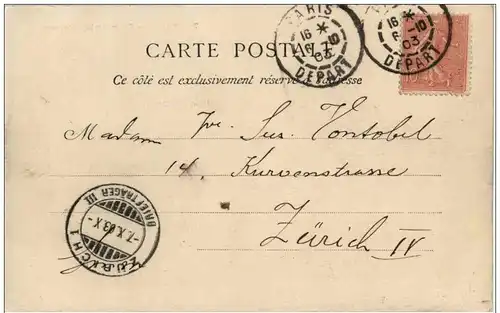 CARTE POSTALE
Ce côté est exclusivement réservé à l'adresse
PARIS
16 * 6 -10 03
DEPART
16 * 6 -10 03
DEPART
Madam Fr. Sus. Vontobel
14. Kurvenstrasse
Zürich IV
BRIEFTRÄGER III
-7.X.03.X-
ZÜRICH 1